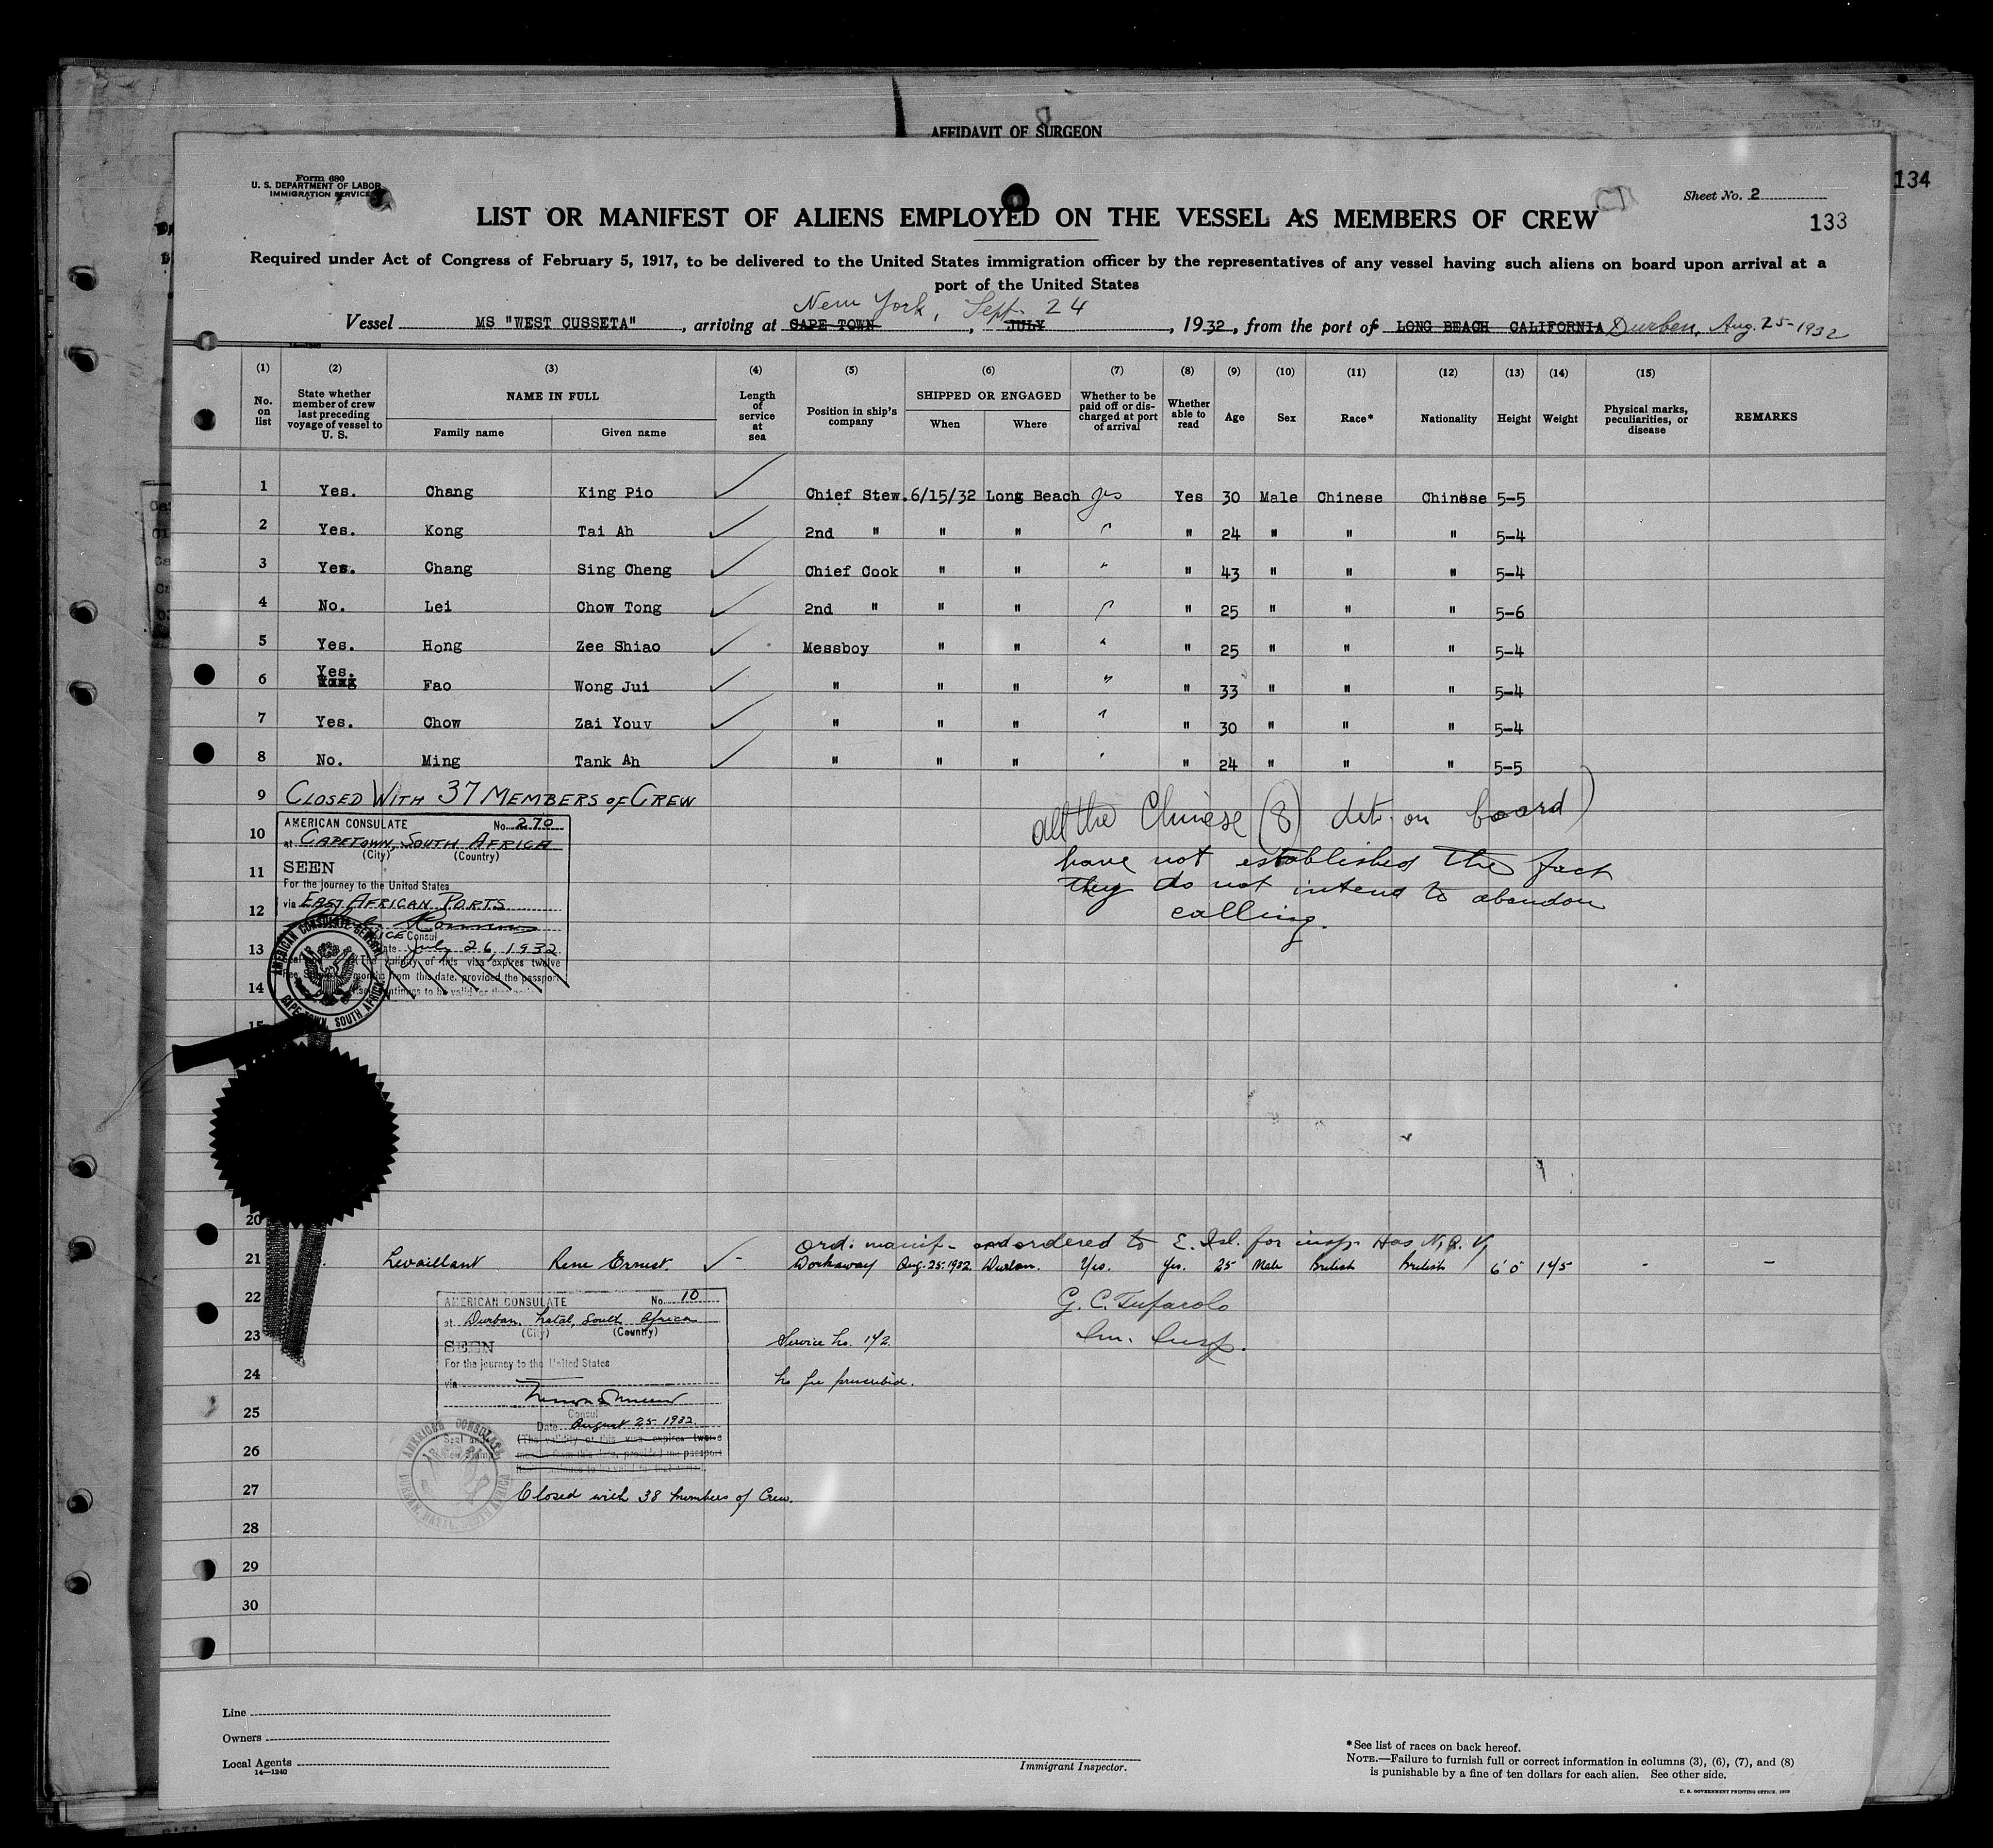 AFFIDAVIT OF SURGEON
134
Form 680
U. S. DEPARTMENT OF LABOR
IMMIGRATION SERVICE
Sheet No. 2
133
LIST OR MANIFEST OF ALIENS EMPLOYED ON THE VESSEL AS MEMBERS OF CREW
Required under Act of Congress of February 5, 1917, to be delivered to the United States immigration officer by the representatives of any vessel having such aliens on board upon arrival at a
port of the United States
New York, Sept. 24
Vessel MS "WEST CUSSETA", arriving at CAPE TOWN, JULY, 1932, from the port of LONG BEACH CALIFORNIA Durben, Aug. 25-1932
(1) (2) (3) (4) (5) (6) (7) (8) (9) (10) (11) (12) (13) (14) (15)
No. on list
State whether member of crew last preceding voyage of vessel to U. S.
NAME IN FULL
Family name
Given name
Length of service at sea
Position in ship's company
SHIPPED OR ENGAGED
When
Where
Whether to be paid off or discharged at port of arrival
Whether able to read
Age
Sex
Race*
Nationality
Height
Weight
Physical marks, peculiarities, or disease
REMARKS
1 Yes. Chang King Pio Chief Stew. 6/15/32 Long Beach yes Yes 30 Male Chinese Chinese 5-5
2 Yes. Kong Tai Ah 2nd " " " " " 24 " " " 5-4
3 Yes. Chang Sing Cheng Chief Cook " " " " 43 " " " 5-4
4 No. Lei Chow Tong 2nd " " " " " 25 " " " 5-6
5 Yes. Hong Zee Shiao Messboy " " " " 25 " " " 5-4
6 Yes. Fao Wong Jui " " " " " 33 " " " 5-4
7 Yes. Chow Zai Youv " " " " " 30 " " " 5-4
8 No. Ming Tank Ah " " " " " 24 " " " 5-5
9 CLOSED WITH 37 MEMBERS OF CREW
all the Chinese (8) det. on board)
have not established the fact
they do not intend to abandon
calling.
AMERICAN CONSULATE No. 270
10 at CAPETOWN, SOUTH AFRICA
(City) (Country)
11 SEEN
For the journey to the United States
12 via EAST AFRICAN PORTS
VICE Consul
13 Date July 26, 1932
(The validity of this visa expires twelve
months from this date, provided the passport
14 continues to be valid for that
AMERICAN CONSULATE GENERAL
CAPE TOWN, SOUTH AFRICA
15
20
ord. manif. and ordered to E. Isl. for insp. Has N. Q. V,
21 Levaillant Rene Ernest. Workaway Aug. 25-1932. Durban. Yes. Yes. 25 Male British British 6'0" 145 - -
22 AMERICAN CONSULATE No. 10
G. C. Tufarolo
Im. Insp.
at Durban, Natal, South Africa
(City) (Country)
23 SEEN
Service No. 142.
For the journey to the United States
24 via
No fee prescribed.
25 Consul
Date August 25-1932
26 (The validity of this visa expires twelve
months from this date, provided the passport
continues to be valid for that period.
AMERICAN CONSULATE
DURBAN, NATAL, SOUTH AFRICA
27 Closed with 38 members of Crew.
28
29
30
Line
Owners
Local Agents
14—1240
Immigrant Inspector.
*See list of races on back hereof.
NOTE.—Failure to furnish full or correct information in columns (3), (6), (7), and (8)
is punishable by a fine of ten dollars for each alien. See other side.
U. S. GOVERNMENT PRINTING OFFICE: 1929